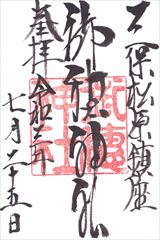 三保松原鎮座
御穂神社
奉拝 令和 年
七月二十五日